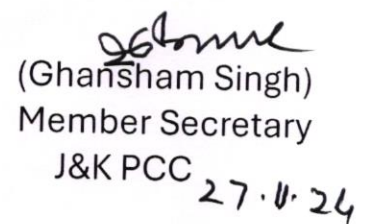 (Ghansham Singh)
Member Secretary
J&K PCC
27.11.24